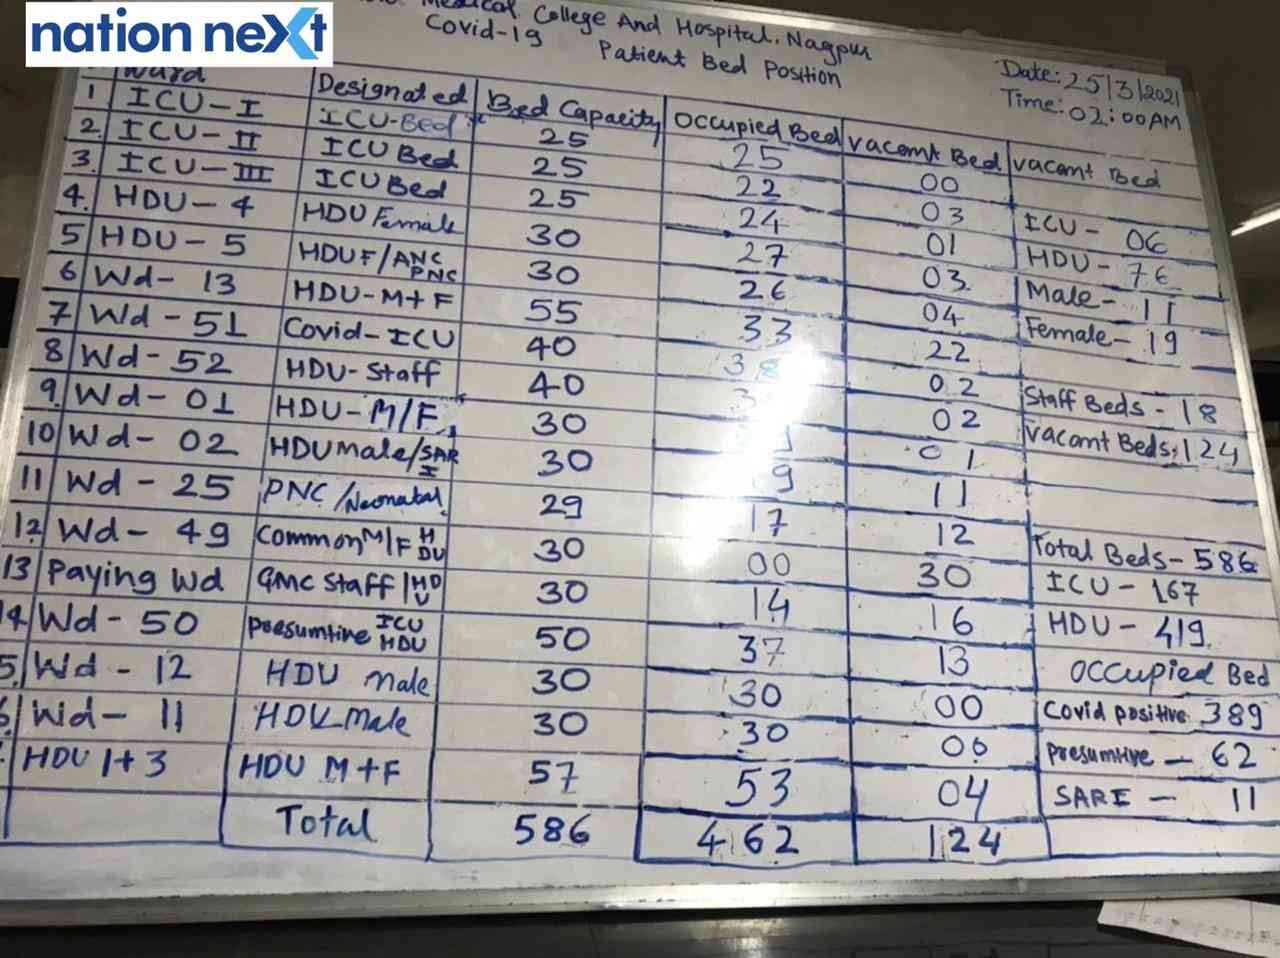 nation next
Medical College And Hospital, Nagpur
Covid-19 Patient Bed Position
Date: 25/3/2021
Time: 02:00AM
Ward Designated Bed Capacity Occupied Bed Vacant Bed Vacant Bed
1 ICU-I ICU-Bed 25 25 00
2. ICU-II ICU Bed 25 22 03
3. ICU-III ICU Bed 25 24 01
4. HDU-4 HDU Female 30 27 03
5 HDU-5 HDU F/ANC PNC 30 26 04
6 Wd-13 HDU-M+F 55 33 22
7 Wd-51 Covid-ICU 40 38 02
8 Wd-52 HDU-Staff 40 02
9. Wd-01 HDU-M/F 30 01
10 Wd-02 HDU Male/SARI 30 11
11 Wd-25 PNC/Neonatal 29 17 12
12 Wd-49 Common M/F HDU 30 00 30
13 Paying Wd GMC Staff/HDU 30 14 16
14. Wd-50 Presumtive ICU HDU 50 37 13
5. Wd-12 HDU Male 30 30 00
6 Wd-11 HDU Male 30 30 00
HDU 1+3 HDU M+F 57 53 04
Total 586 462 124
ICU- 06
HDU- 76
Male- 11
Female- 19
Staff Beds - 18
Vacant Beds: 124
Total Beds- 586
ICU- 167
HDU- 419
Occupied Bed
Covid positive 389
Presumtive - 62
SARE - 11